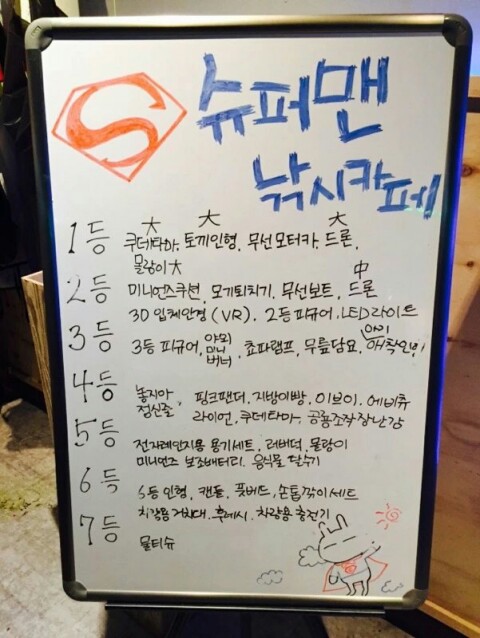 S
슈퍼맨
낚시카페
大 大 大
1등 쿠데타마, 토끼인형, 무선모터카, 드론,
몰랑이大
中
2등 미니언즈쿠션, 모기퇴치기, 무선보트, 드론
3D 입체안경(VR), 2등피규어, LED라이트
3등 3등 피규어, 야옹이 버너, 쵸파램프, 무릎담요, 애착인형
4등 놓지마 정신줄, 핑크팬더, 지방이빵, 이브이, 에비츄
라이언, 쿠데타마, 공룡조작장난감
5등 전자레인지용 용기세트, 러버덕, 몰랑이
미니언즈 보조배터리, 음식물 탈수기
6등 6등 인형, 캔들, 풋버드, 손톱깎이세트
차량용 거치대, 후레시, 차량용 충전기
7등 물티슈